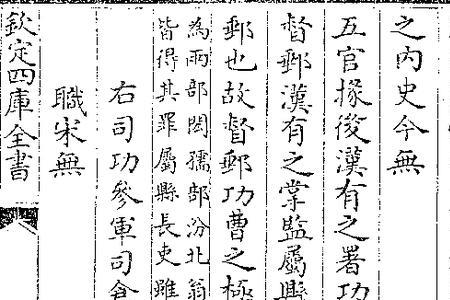 之內史今無
五官掾後漢有之署功
督郵漢有之掌監屬縣
郵也故督郵功曹之極
為兩部閎孺部汾北翁
皆得其罪屬縣長吏雖
右司功參軍司倉
職宋無
欽定四庫全書